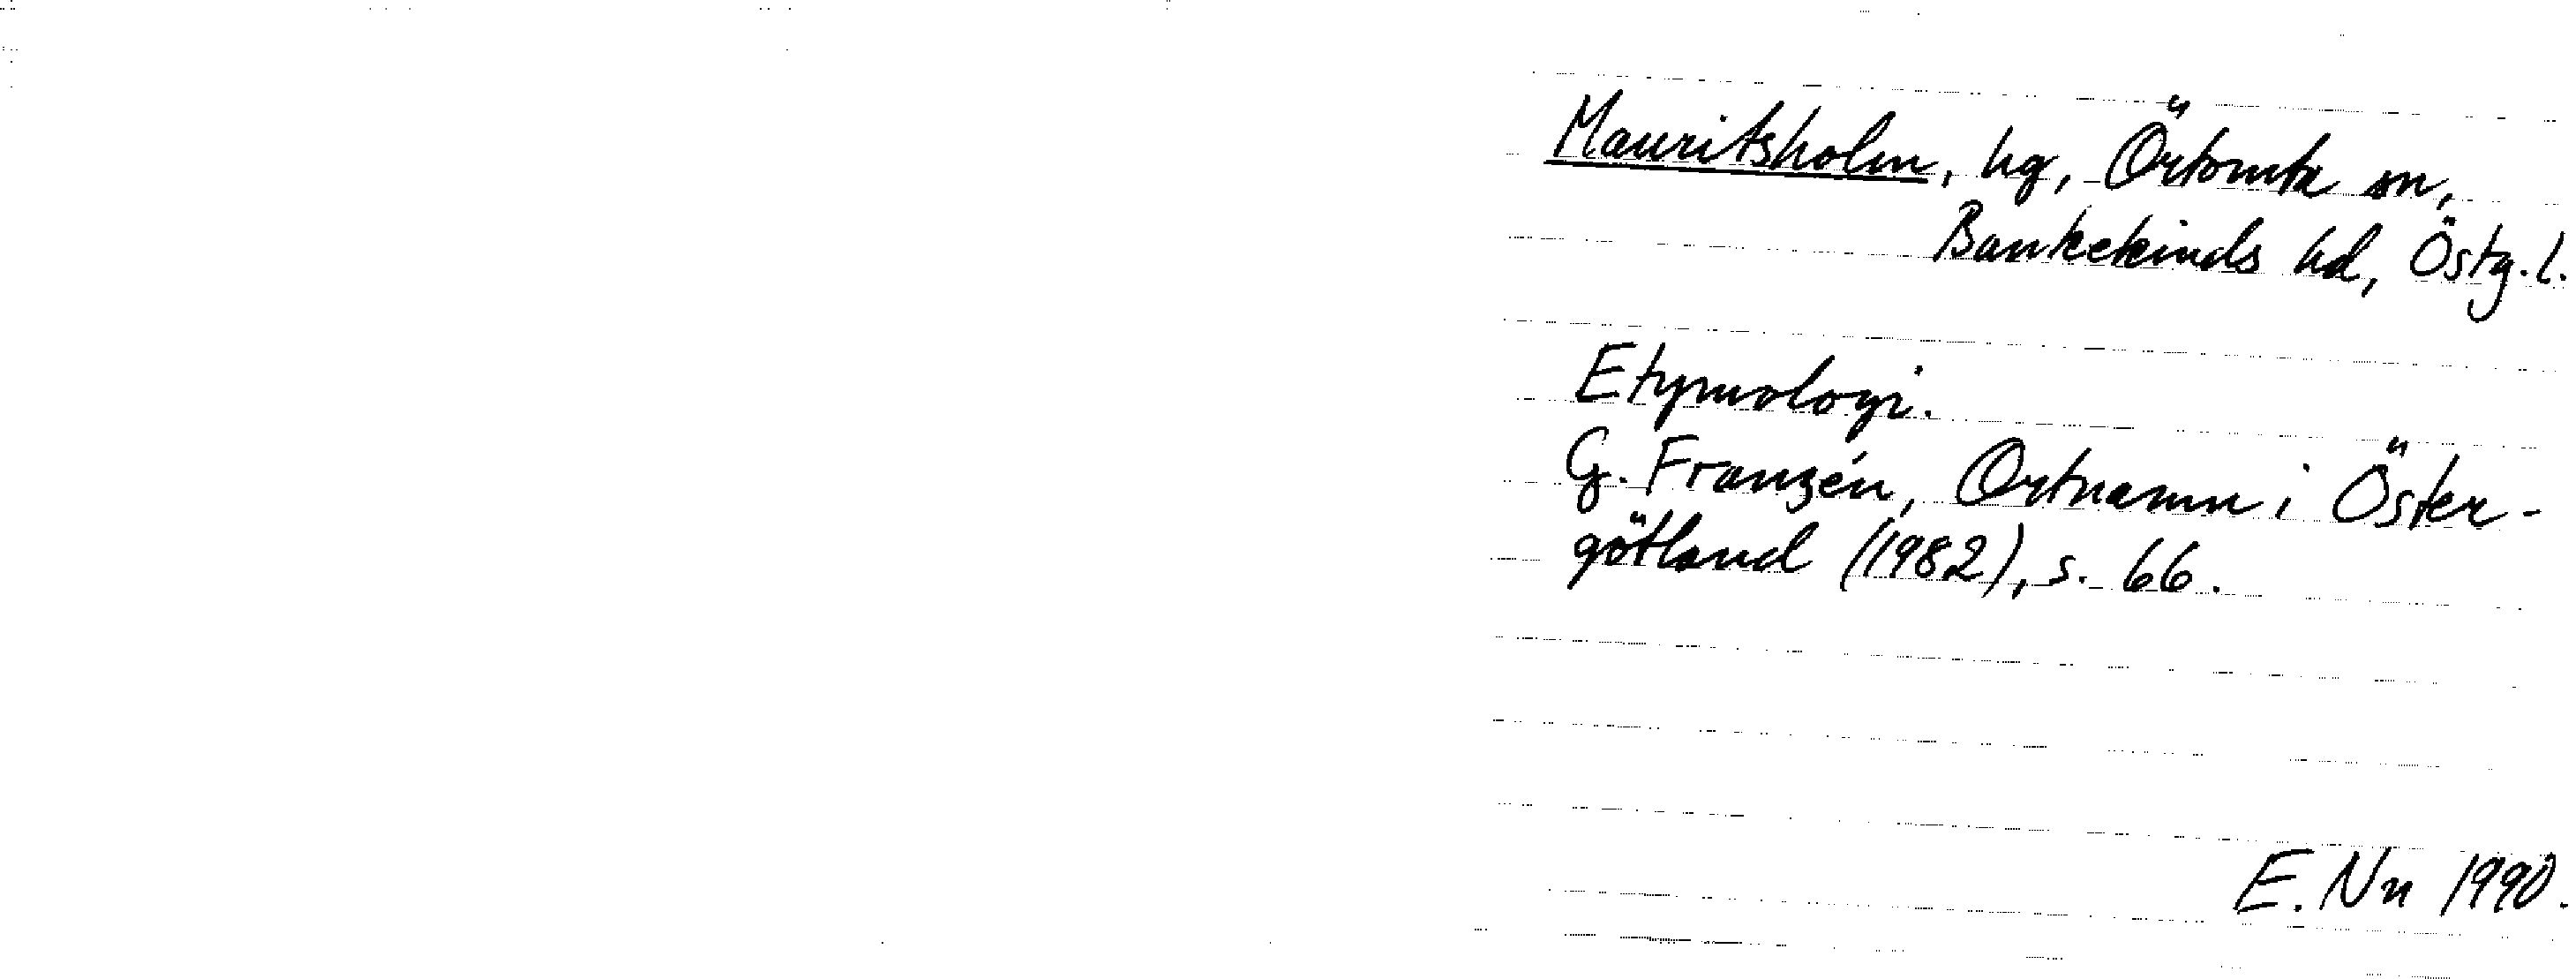 Mauritsholm, hg, Örtomta sn,
Bankekinds hd, Östg.l.
Etymologi.
G. Franzén, Ortnamn i Öster-
götland (1982), s. 66.
E. Nn 1990.